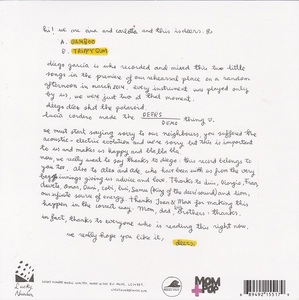 hi! we are ana and carlotta and this is deers. &
A. BAMBOO
B. TRIPPY GUM
diego garcía is who recorded and mixed this two little
songs in the premise of our rehearsal place on a random
afternoon in march 2014. every instrument was played only
by us, we were just two at that moment.
diego did shot the polaroid
lucía cordero made the DEERS
DEMO thing
we must start saying sorry to our neighbours, you suffered the
acoustic-electric evolution and we're sorry but this is important
to us and makes us happy and blabla bla.
now, we really want to say thanks to diego. this record belongs to
you too. also to alex and ade who have been with us from the very
beginnings giving us advice and love. Thanks to
our infinite source of energy. thanks Juan & Mar for making this
happen in the correct way. Mom, dad, brothers: thanks.
in fact, thanks to everyone who is reading this right now,
we really hope you like it,
deers
Lucky
Number
MOM
POP